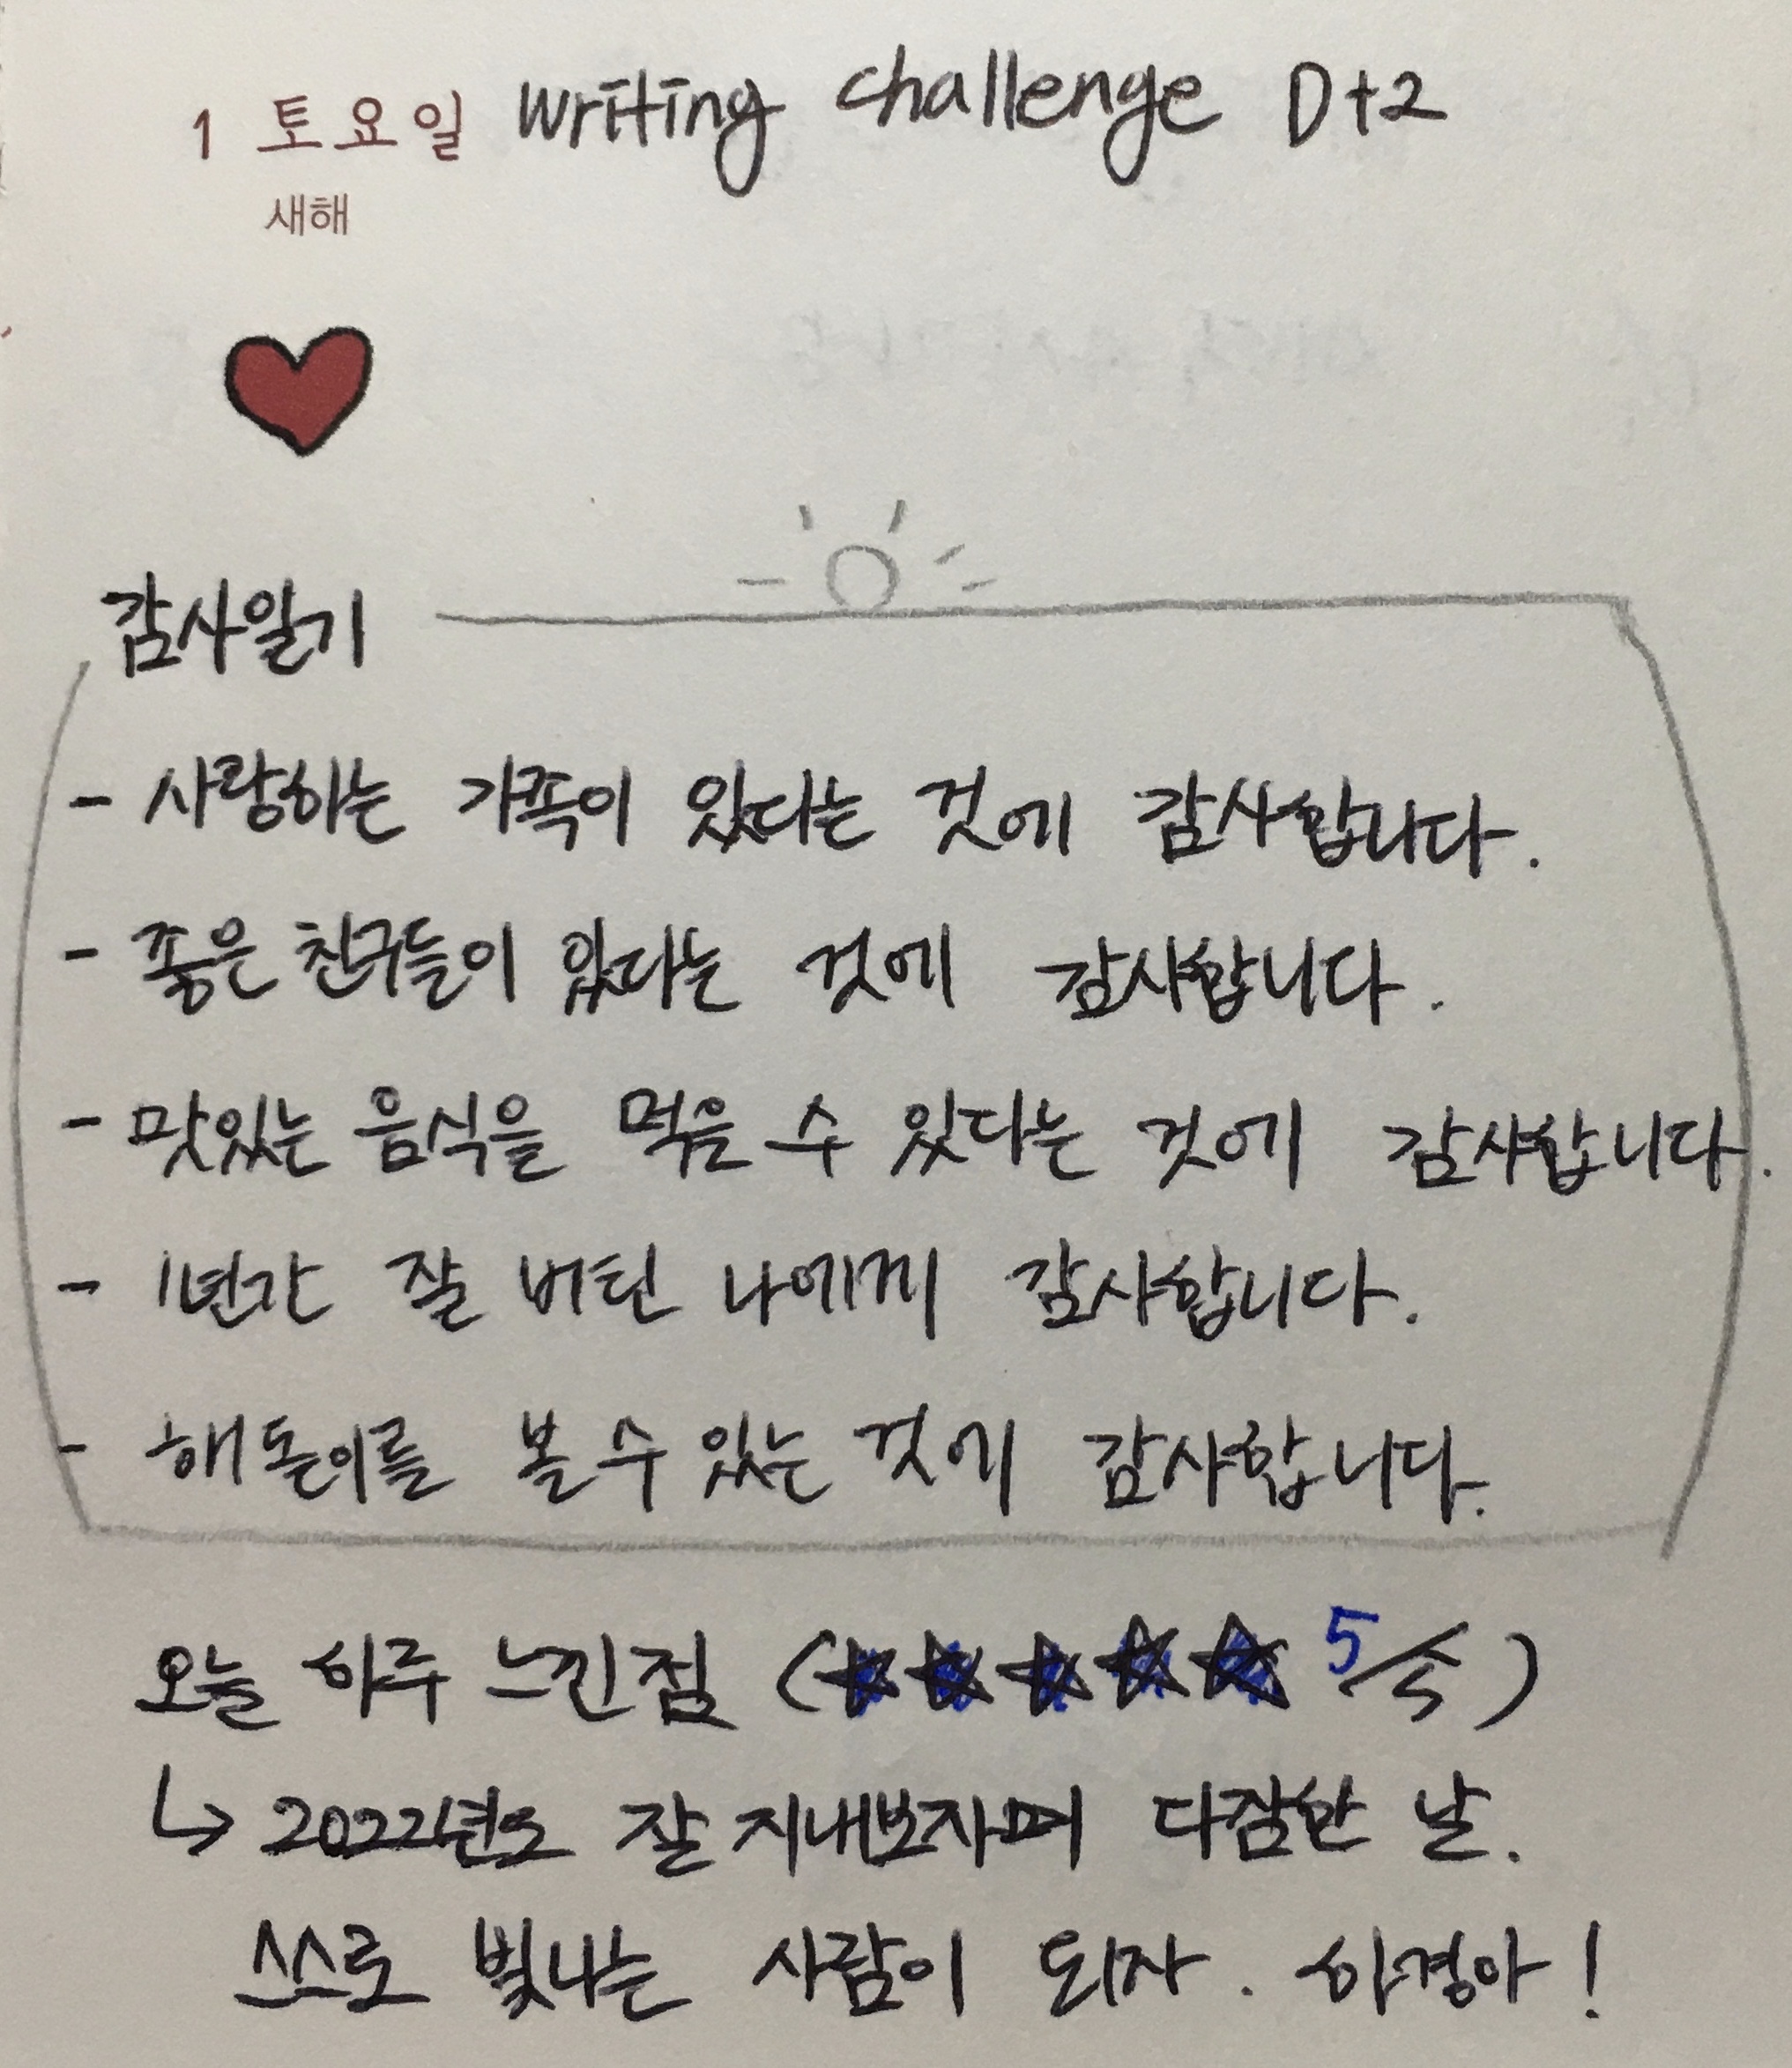 1 토요일 writing challenge D+2
새해
감사일기
- 사랑하는 가족이 있다는 것에 감사합니다.
- 좋은 친구들이 있다는 것에 감사합니다.
- 맛있는 음식을 먹을 수 있다는 것에 감사합니다.
- 1년간 잘 버틴 나에게 감사합니다.
- 해돋이를 볼 수 있는 것에 감사합니다.
오늘 하루 느낀점 (★★★★★ 5/5)
↳ 2022년도 잘 지내보자며 다짐한 날.
스스로 빛나는 사람이 되자. 하경아!